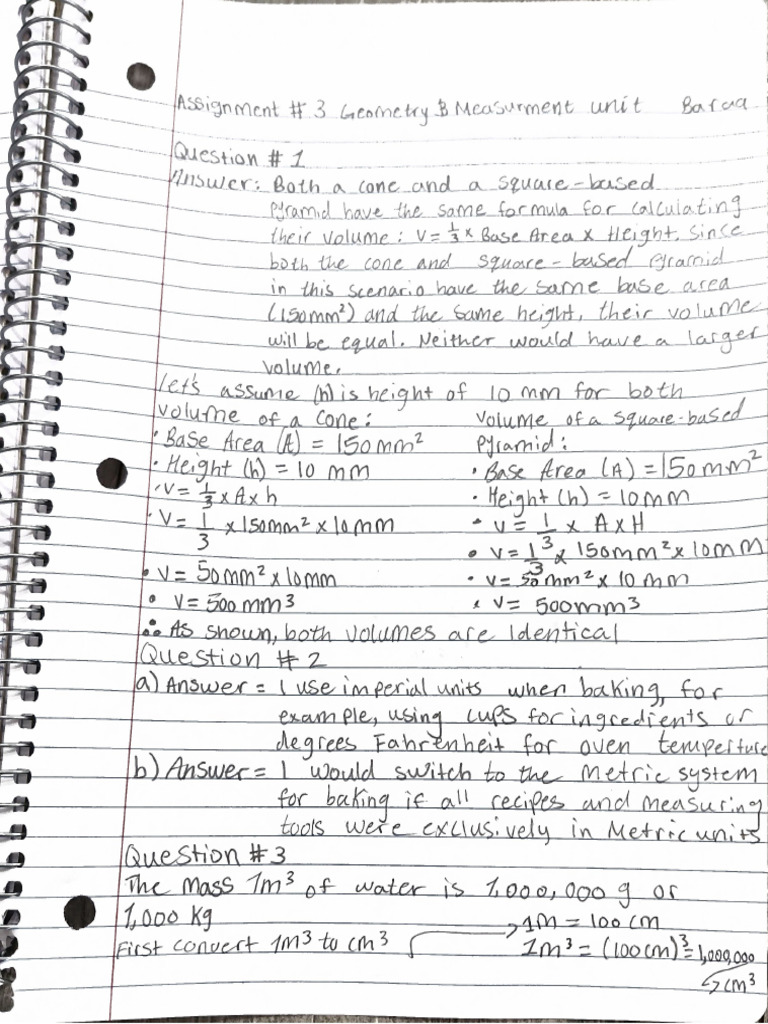 Assignment # 3 Geometry & Measurment unit Baraa
Question # 1
Answer: Both a cone and a square-based
pyramid have the same formula for calculating
their volume: V = 1/3 × Base Area × Height. Since
both the cone and square-based pyramid
in this scenario have the same base area
(150mm²) and the same height, their volume
will be equal. Neither would have a larger
volume.
Let's assume (h) is height of 10 mm for both
volume of a cone:
· Base Area (A) = 150mm²
· Height (h) = 10 mm
· V = 1/3 × A × h
· V = 1/3 × 150mm² × 10mm
• V = 50mm² × 10mm
• V = 500 mm³
volume of a square-based
pyramid:
• Base Area (A) = 150mm²
• Height (h) = 10mm
• V = 1/3 × A × H
• V = 1/3 × 150mm² × 10mm
• V = 50 mm² × 10 mm
• V = 500mm³
∴ As shown, both volumes are identical
Question # 2
a) Answer = I use imperial units when baking, for
example, using cups for ingredients or
degrees Fahrenheit for oven temperture
b) Answer = I would switch to the metric system
for baking if all recipes and measuring
tools were exclusively in Metric units
Question # 3
The mass 1m³ of water is 1,000,000 g or
1,000 kg
First convert 1m³ to cm³
→ 1M = 100 cm
1m³ = (100cm)³ = 1,000,000
↳ cm³